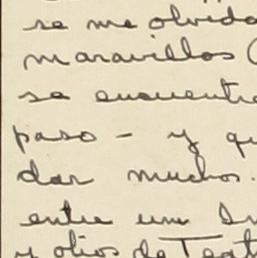 se me olvida
maravillos (
se encuentra
paso - y qu
dar muchos.
entre un In
y otios de Teat